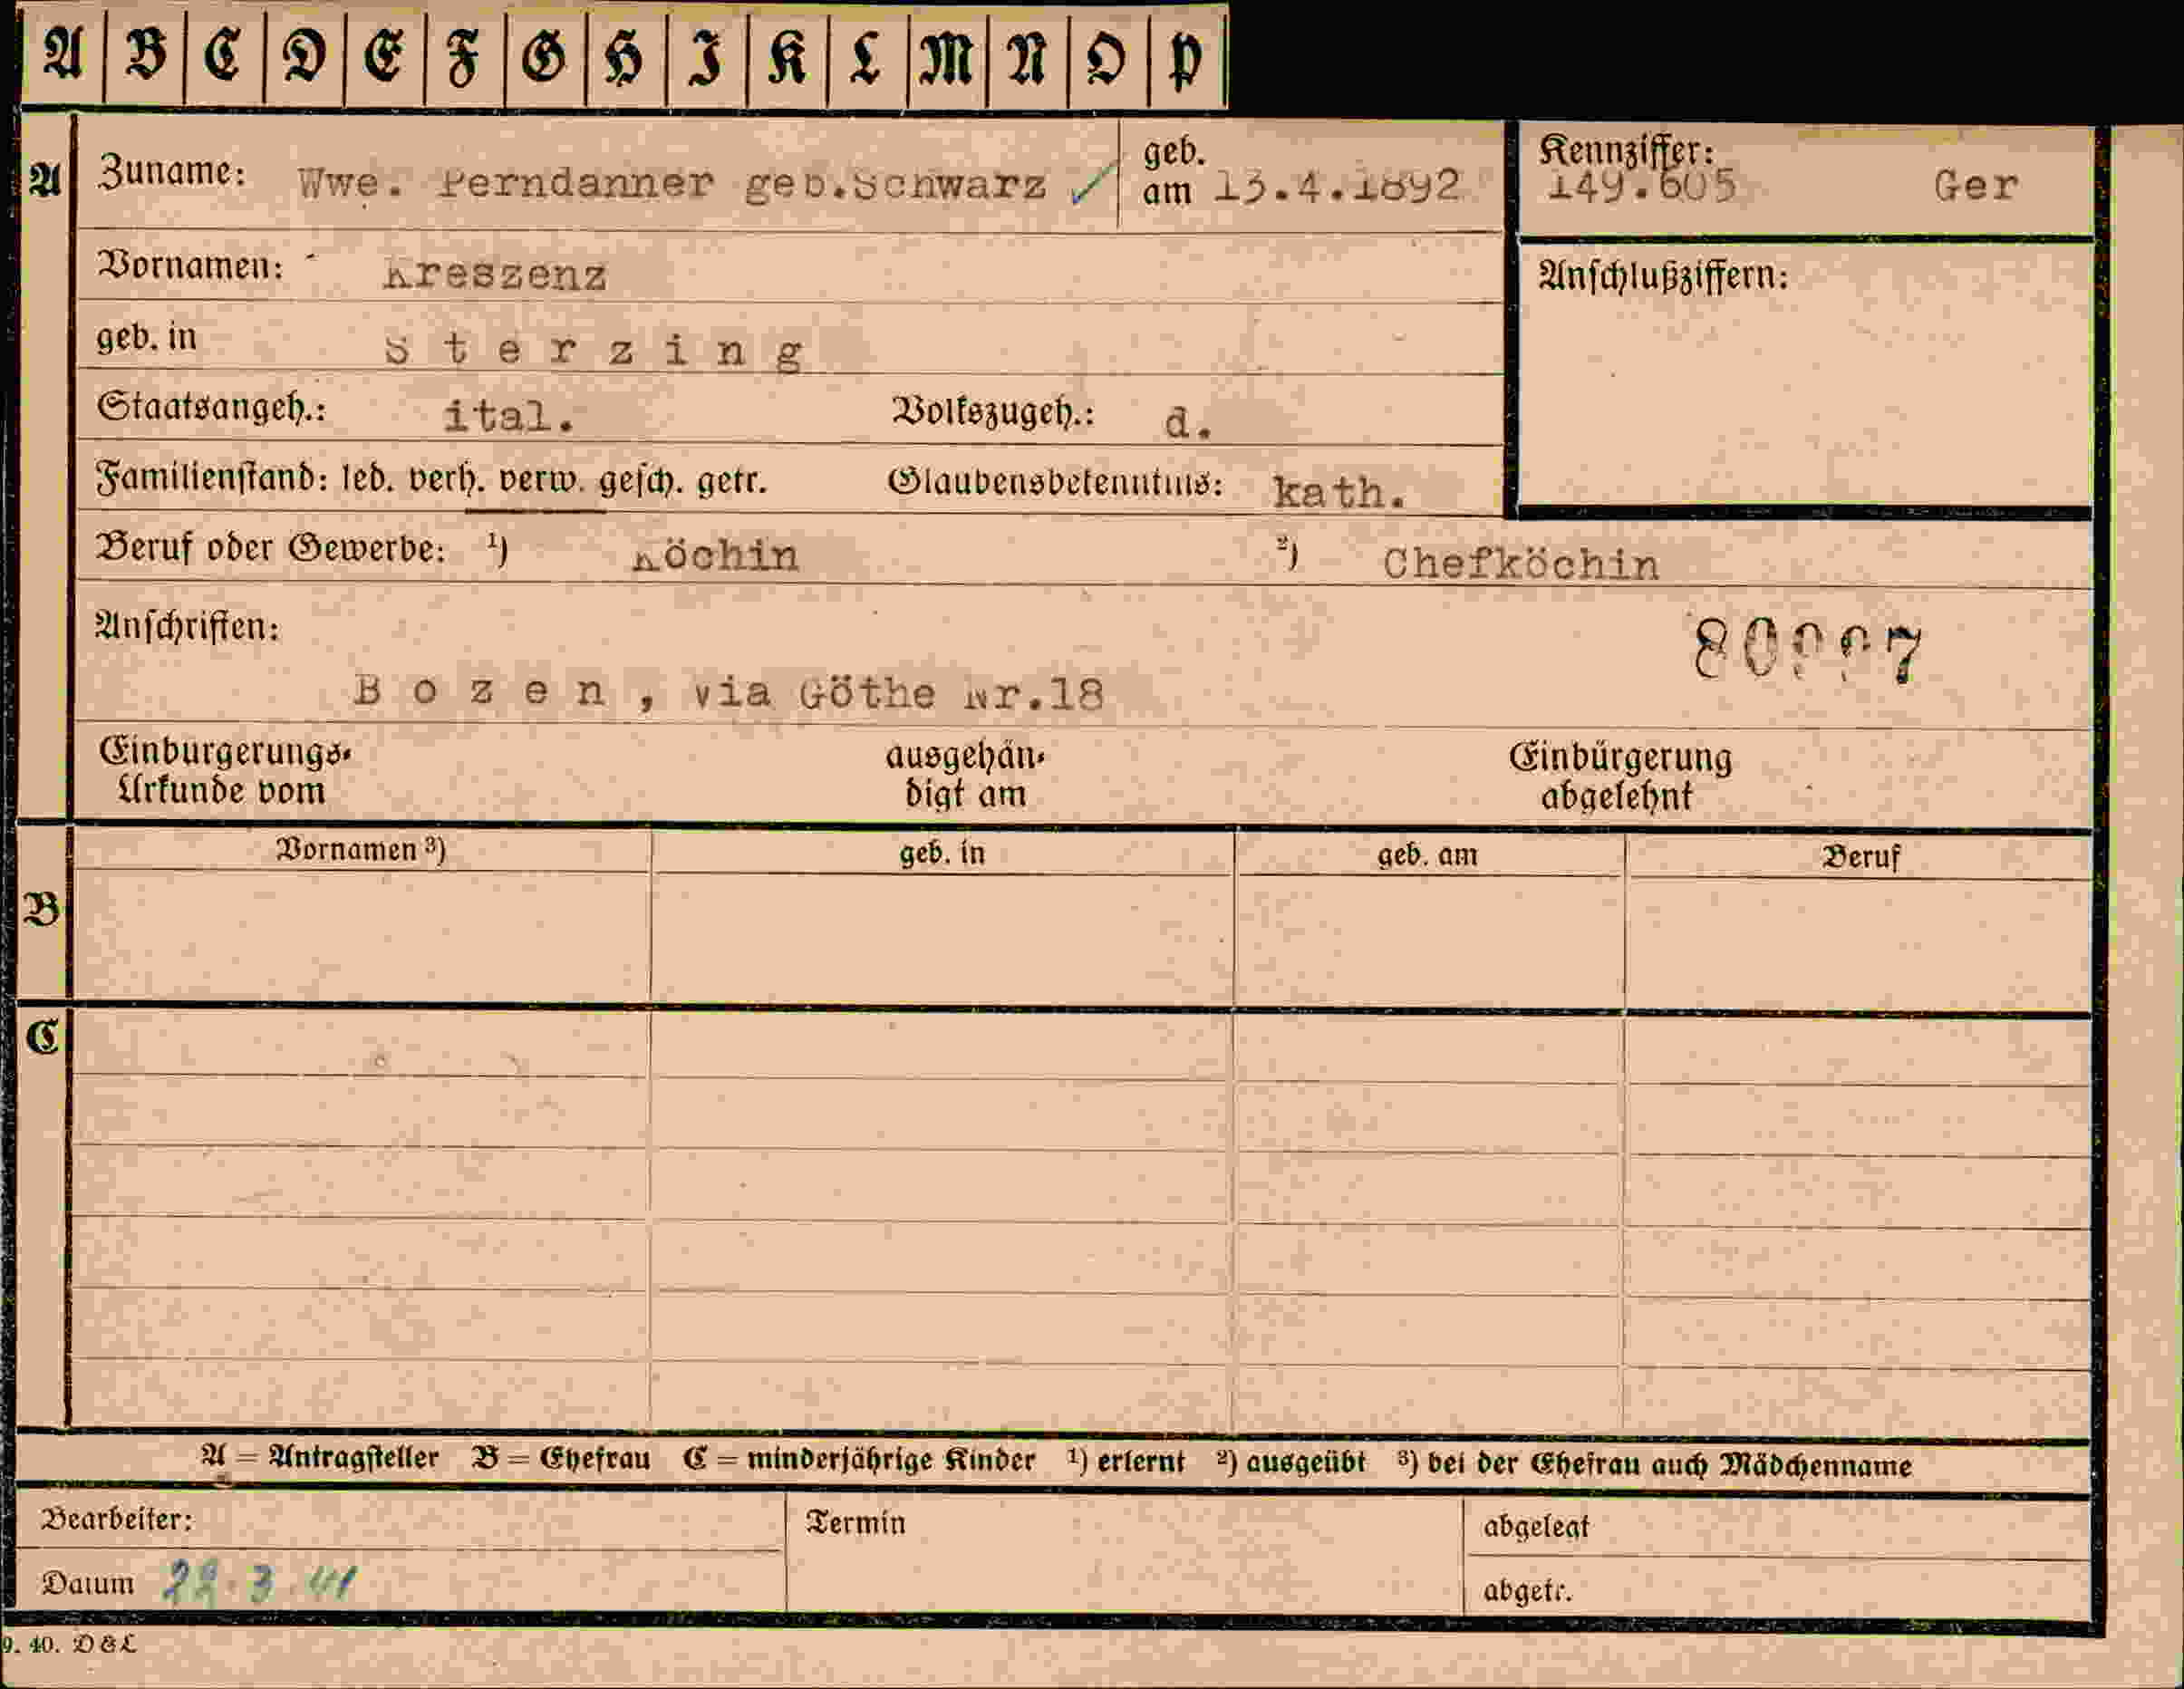 A B C D E F G H I K L M N O P
A Zuname: Wwe. Perndanner geb.Schwarz ✓ geb. am 13.4.1892 Kennziffer: 149.605 Ger
Vornamen: Kreszenz Anschlußziffern:
geb. in S t e r z i n g
Staatsangeh.: ital. Volkszugeh.: d.
Familienstand: led. verh. verw. gesch. getr. Glaubensbekenntnis: kath.
Beruf oder Gewerbe: ¹) Köchin ²) Chefköchin
Anschriften:
B o z e n , via Göthe Nr.18
Einbürgerungs- ausgehän- Einbürgerung
Urkunde vom digt am abgelehnt
Vornamen ³) geb. in geb. am Beruf
B
C
A = Antragsteller B = Ehefrau C = minderjährige Kinder ¹) erlernt ²) ausgeübt ³) bei der Ehefrau auch Mädchenname
Bearbeiter: Termin abgelegt
Datum 22.3.41 abgetr.
9. 40. D&L